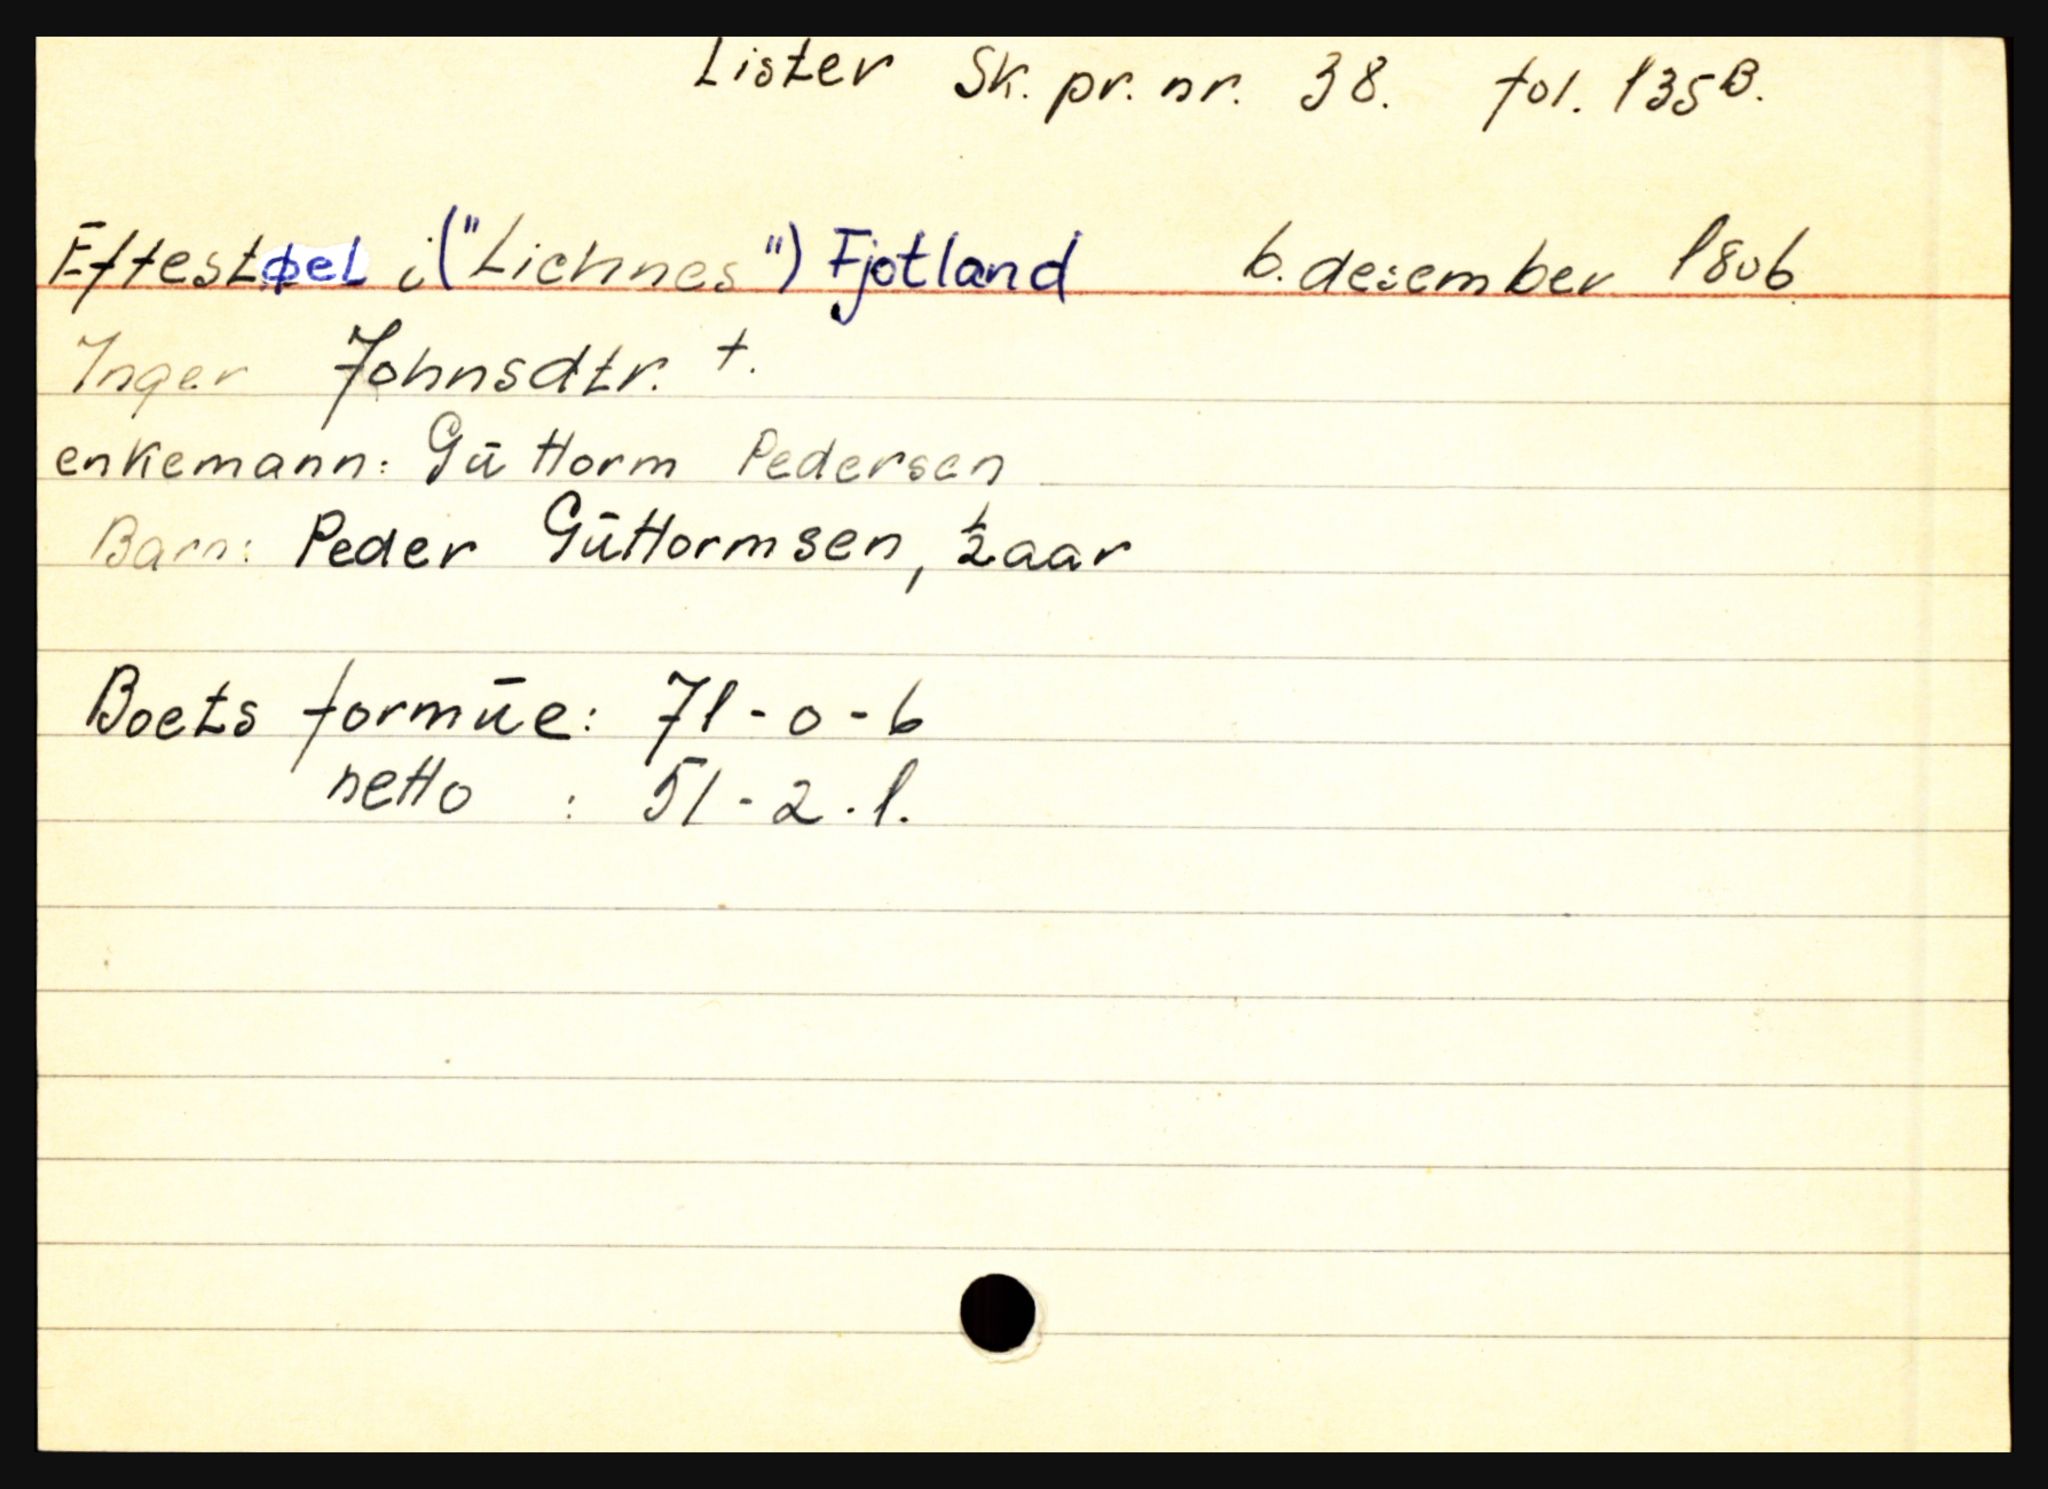 Lister Sk. pr. nr. 38. fol. 135B.
Eftestøel i ("Lichnes") Fjotland 6. desember 1806
Inger Johnsdtr. +.
enkemann: Gūttorm Pedersen
Barn: Peder Gūttormsen, ½ aar
Boets formūe: 71-0-6
netto : 51-2-1.